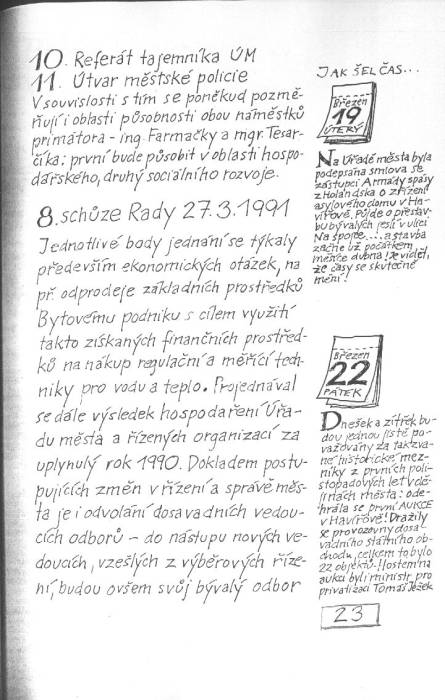 10. Referát tajemníka ÚM
11. Útvar městské policie
V souvislosti s tím se poněkud pozmě-
ňují i oblasti působnosti obou náměstků
primátora - ing. Farmačky a mgr. Tesar-
číka: první bude působit v oblasti hospo-
dářského, druhý sociálního rozvoje.
8. schůze Rady 27.3.1991
Jednotlivé body jednání se týkaly
především ekonomických otázek, na
př. odprodeje základních prostředků
Bytovému podniku s cílem využití
takto získaných finančních prostřed-
ků na nákup regulační a měřící tech-
niky pro vodu a teplo. Projednával
se dále výsledek hospodaření Úřa-
du města a řízených organizací za
uplynulý rok 1990. Dokladem postu-
pujících změn v řízení a správě měs-
ta je i odvolání dosavadních vedou-
cích odborů - do nástupu nových ve-
doucích, vzešlých z výběrových říze-
ní, budou ovšem svůj bývalý odbor
JAK ŠEL ČAS...
Březen
19
ÚTERÝ
Na Úřadě města byla
podepsána smlouva se
zástupci Armády spásy
z Holandska o zřízení
asylového domu v Ha-
vířově. Půjde o přestav-
bu bývalých jeslí v ulici
Na spojce... a stavba
začne už počátkem
měsíce dubna! Je vidět,
že časy se skutečně
mění!
Březen
22
PÁTEK
Dnešek a zítřek bu-
dou jednou jistě po-
važovány za takzva-
né historické mez-
níky z prvních poli-
stopadových let v dě-
jinách města: ode-
hrála se první AUKCE
v Havířově! Dražily
se provozovny dosa-
vadního státního ob-
chodu, celkem to bylo
22 objektů! Hostem na
aukci byl ministr pro
privatizaci Tomáš Ježek
23